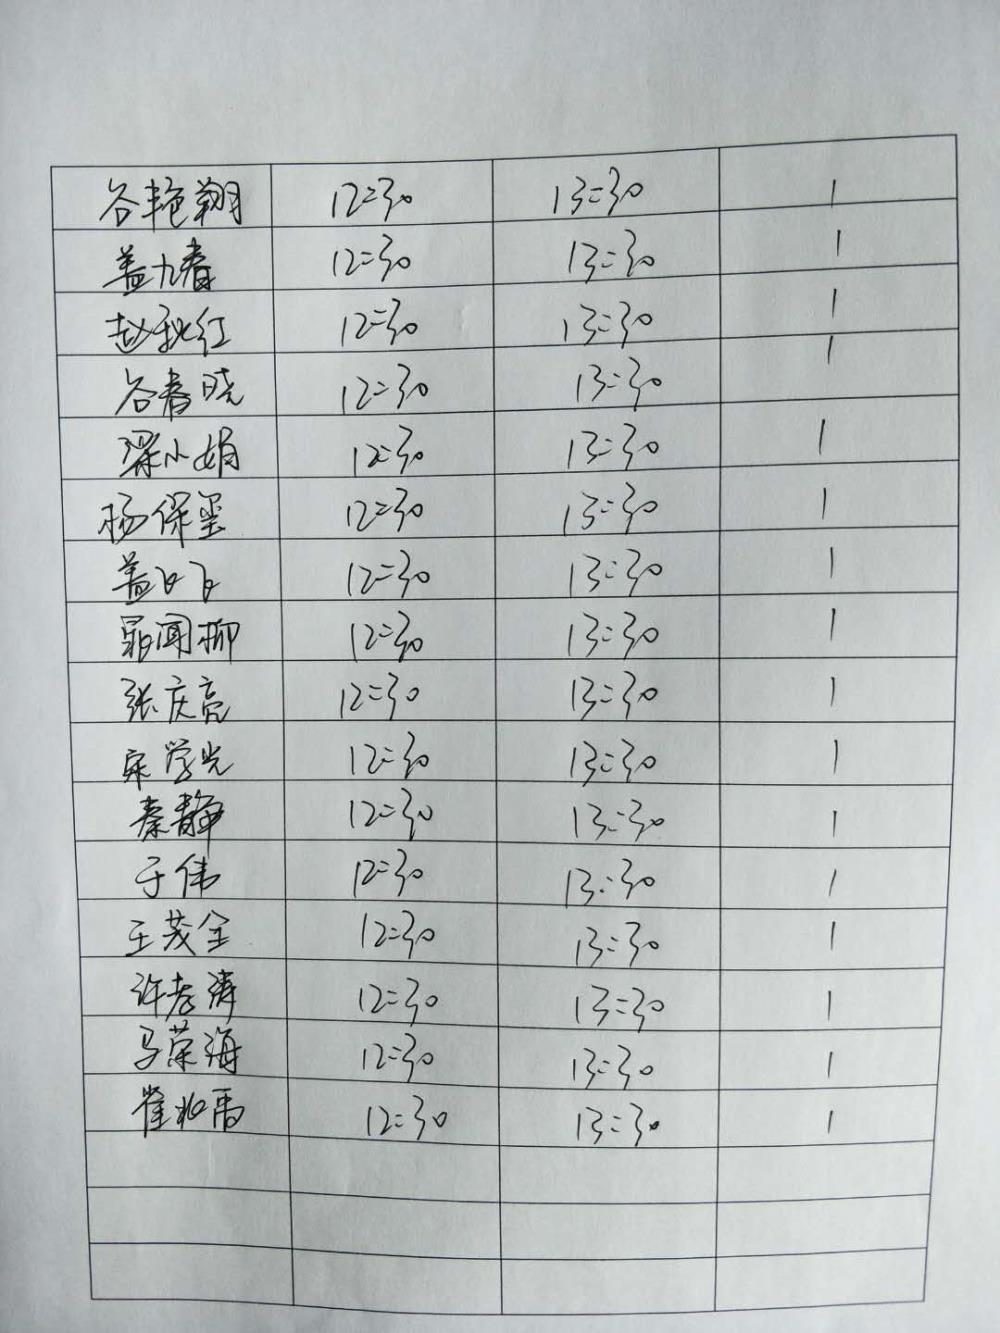 谷艳翔 12:30 13:30 1
盖九春 12:30 13:30 1
赵秋红 12:30 13:30 1
谷春晓 12:30 13:30 1
梁小娟 12:30 13:30 1
杨保玺 12:30 13:30 1
盖飞飞 12:30 13:30 1
12:30 13:30 1
张庆亮 12:30 13:30 1
宋学光 12:30 13:30 1
秦静 12:30 13:30 1
于伟 12:30 13:30 1
王茂全 12:30 13:30 1
许孝涛 12:30 13:30 1
马荣海 12:30 13:30 1
12:30 13:30 1